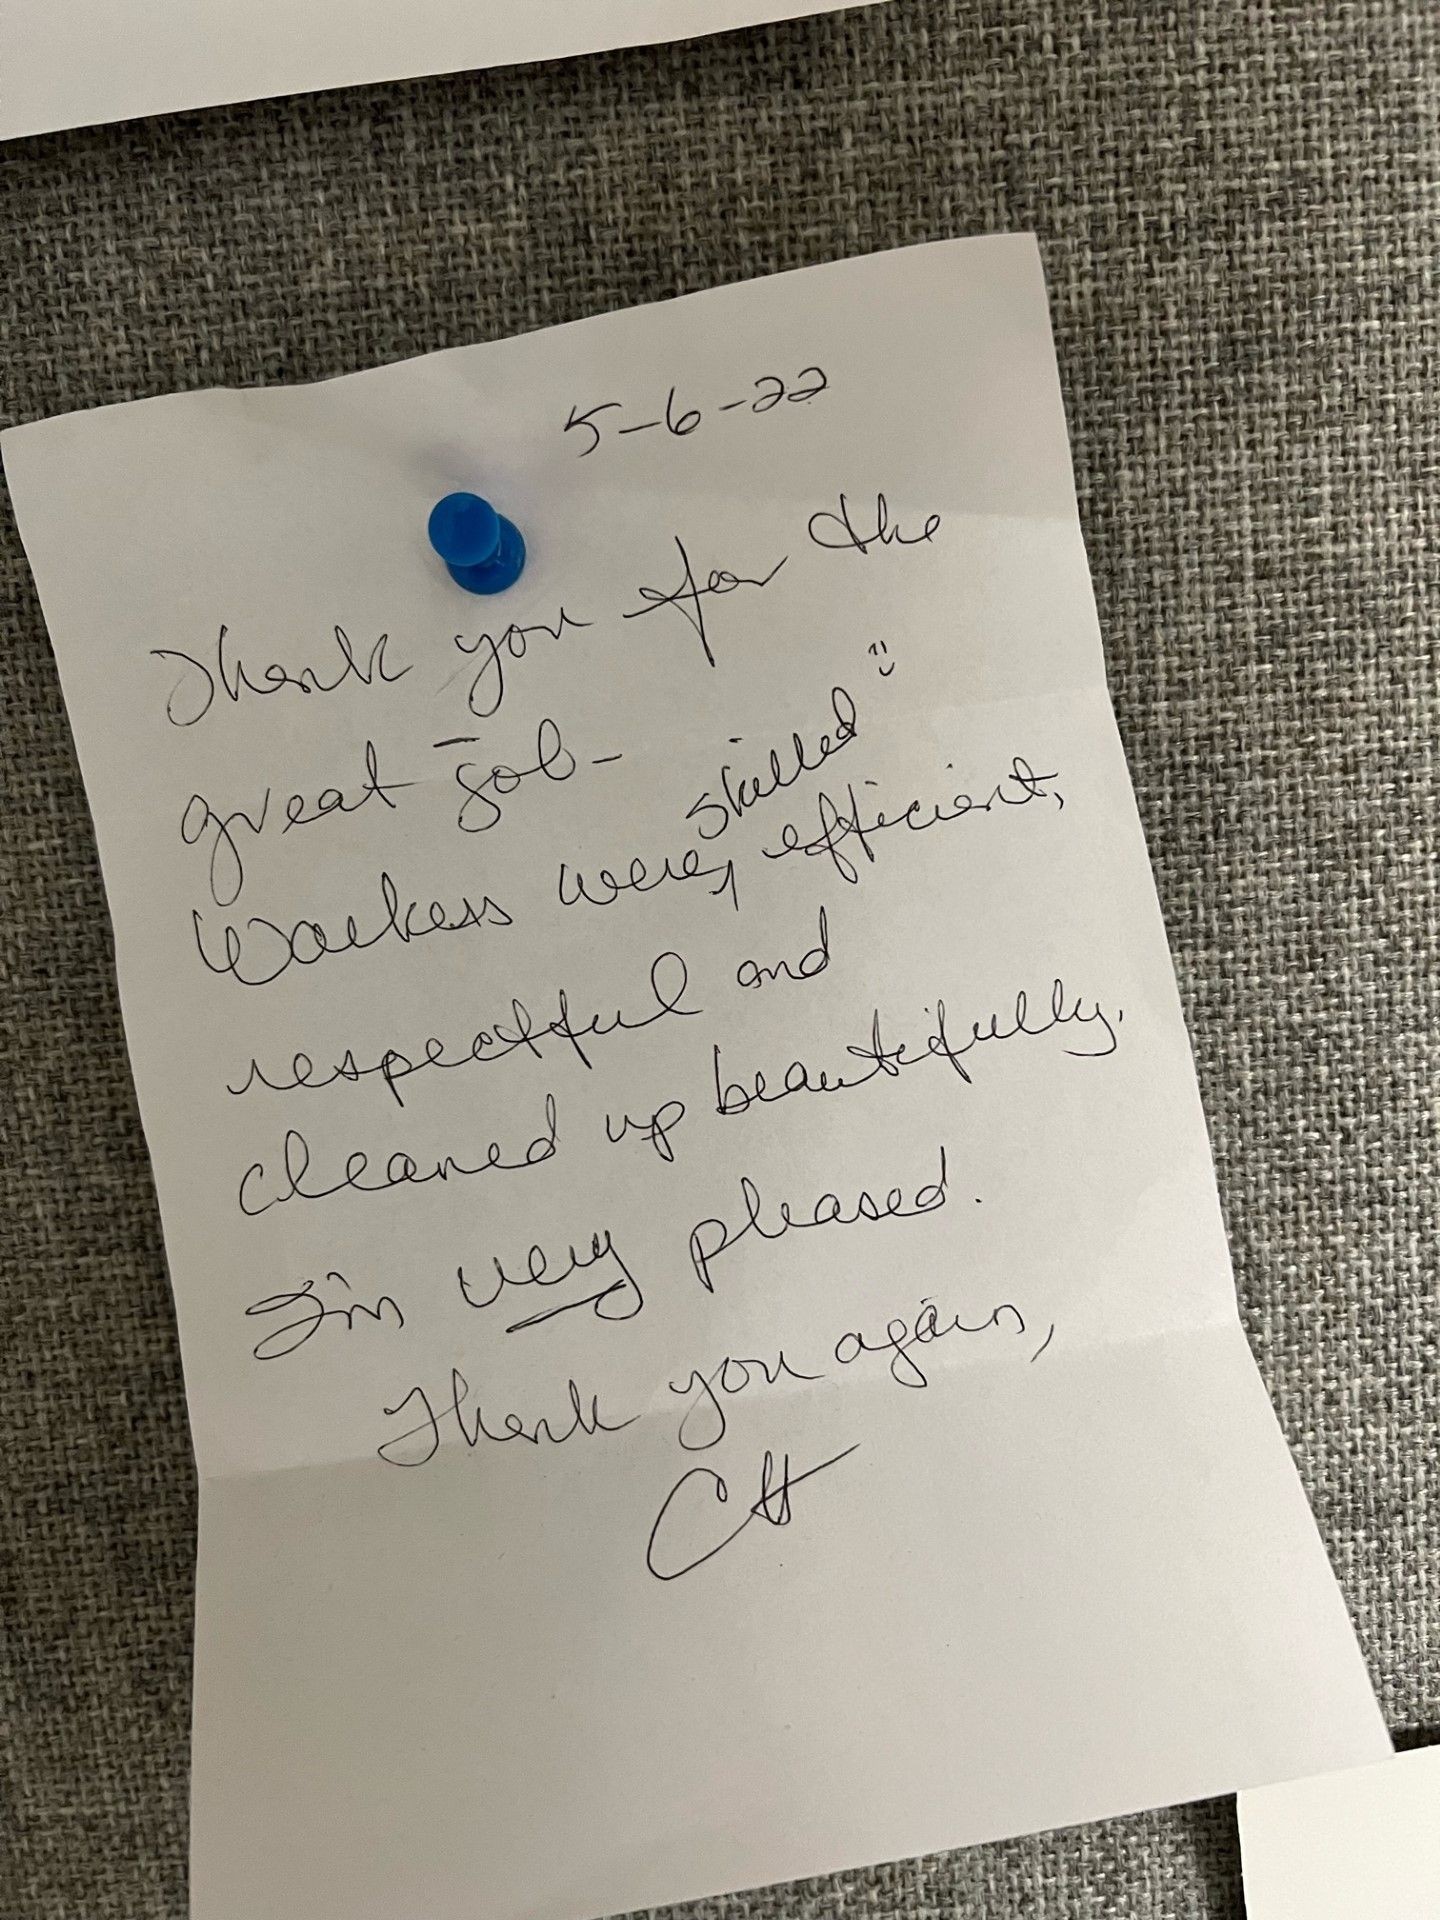 5-6-22
Thank you for the
great job-
skilled
Workers were, efficient,
respectful and
cleaned up beautifully.
I'm very pleased.
Thank you again,
CH